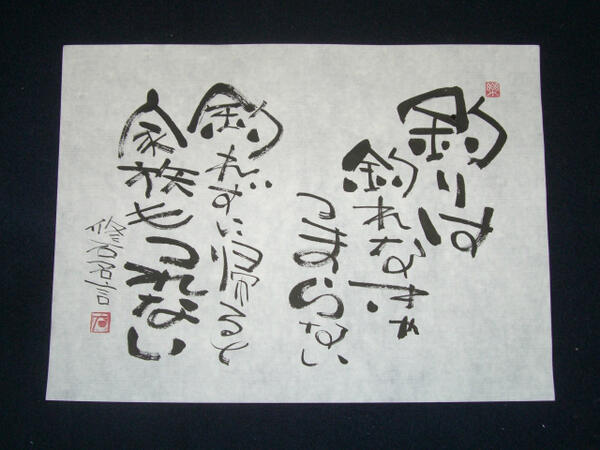 釣りは
釣れなきゃ
つまらない
釣れずに帰ると
家族もつれない